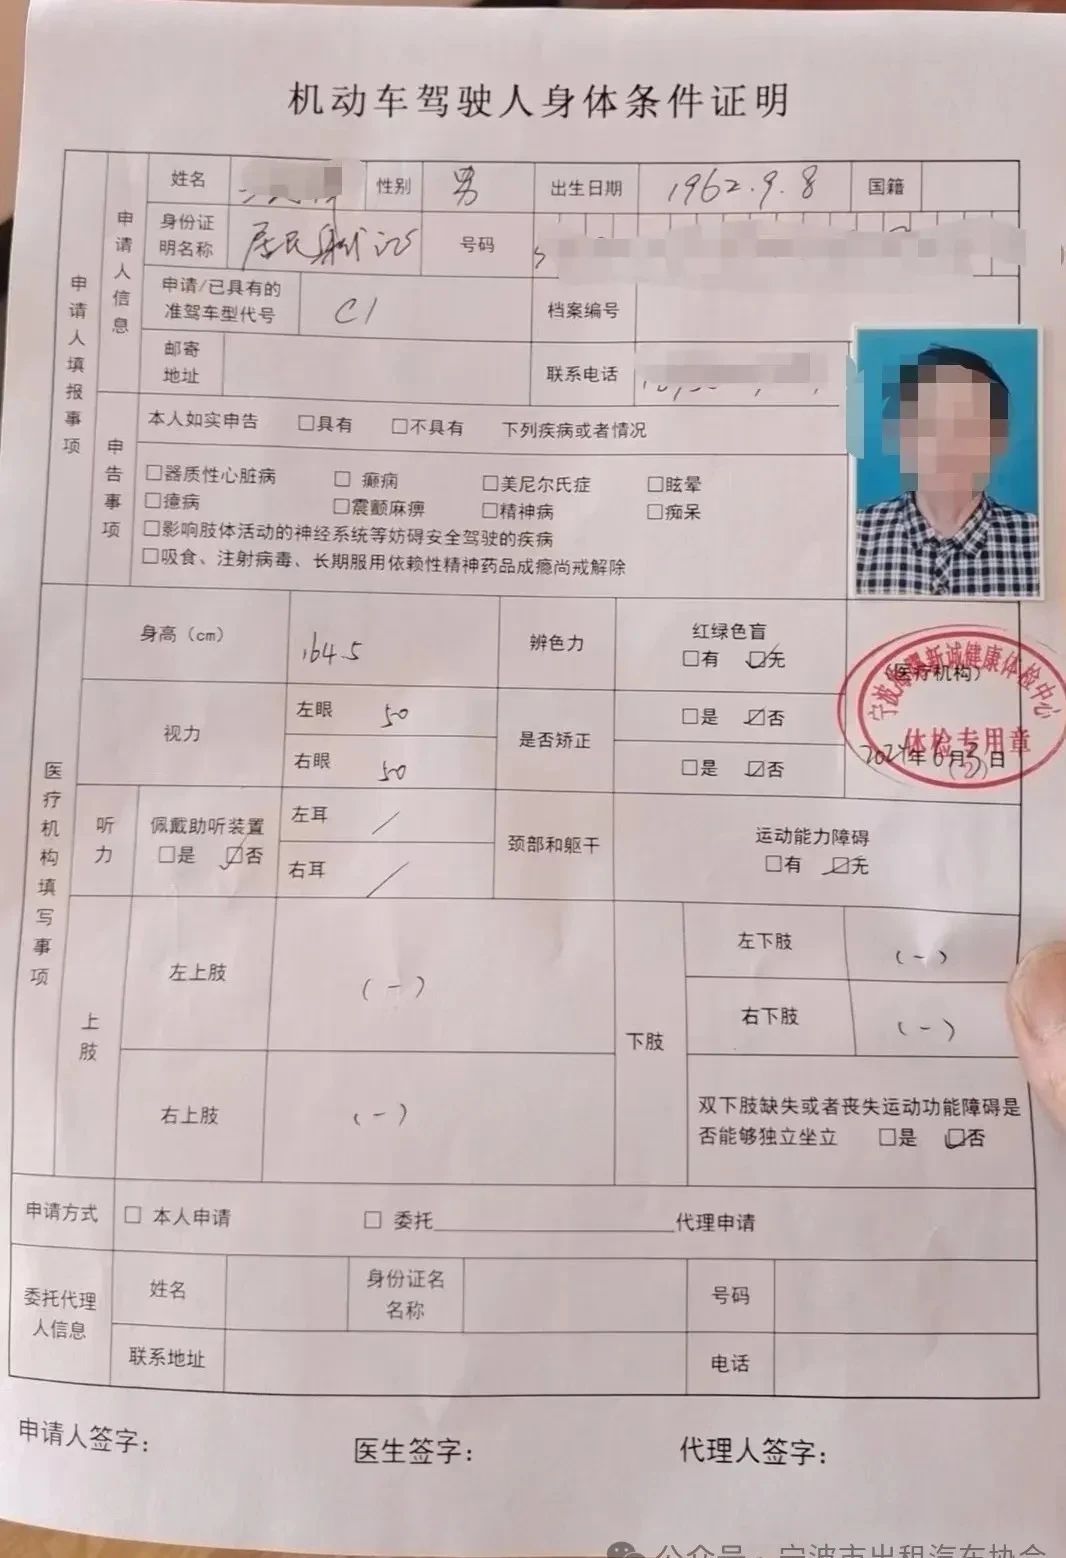 机动车驾驶人身体条件证明
申请人填报事项
申请人信息
姓名 性别 男 出生日期 1962.9.8 国籍
身份证明名称 居民身份证 号码
申请/已具有的准驾车型代号 C1 档案编号
邮寄地址 联系电话
申告事项
本人如实申告 □具有 □不具有 下列疾病或者情况
□器质性心脏病 □癫痫 □美尼尔氏症 □眩晕
□癔病 □震颤麻痹 □精神病 □痴呆
□影响肢体活动的神经系统等妨碍安全驾驶的疾病
□吸食、注射病毒、长期服用依赖性精神药品成瘾尚戒解除
医疗机构填写事项
身高（cm） 164.5 辨色力 红绿色盲
□有 ☑无
(医疗机构)
新诚健康体检中心
体检专用章
(2)
2024年6月 日
视力 左眼 5.0 是否矫正 □是 ☑否
右眼 5.0 □是 ☑否
听力 佩戴助听装置 □是 ☑否 左耳 /
右耳 /
颈部和躯干 运动能力障碍
□有 ☑无
上肢 左上肢 (-)
右上肢 (-)
下肢 左下肢 (-)
右下肢 (-)
双下肢缺失或者丧失运动功能障碍是
否能够独立坐立 □是 ☑否
申请方式 □ 本人申请 □ 委托____________________代理申请
委托代理人信息 姓名 身份证名名称 号码
联系地址 电话
申请人签字： 医生签字： 代理人签字：
公众号·宁波市出租汽车协会